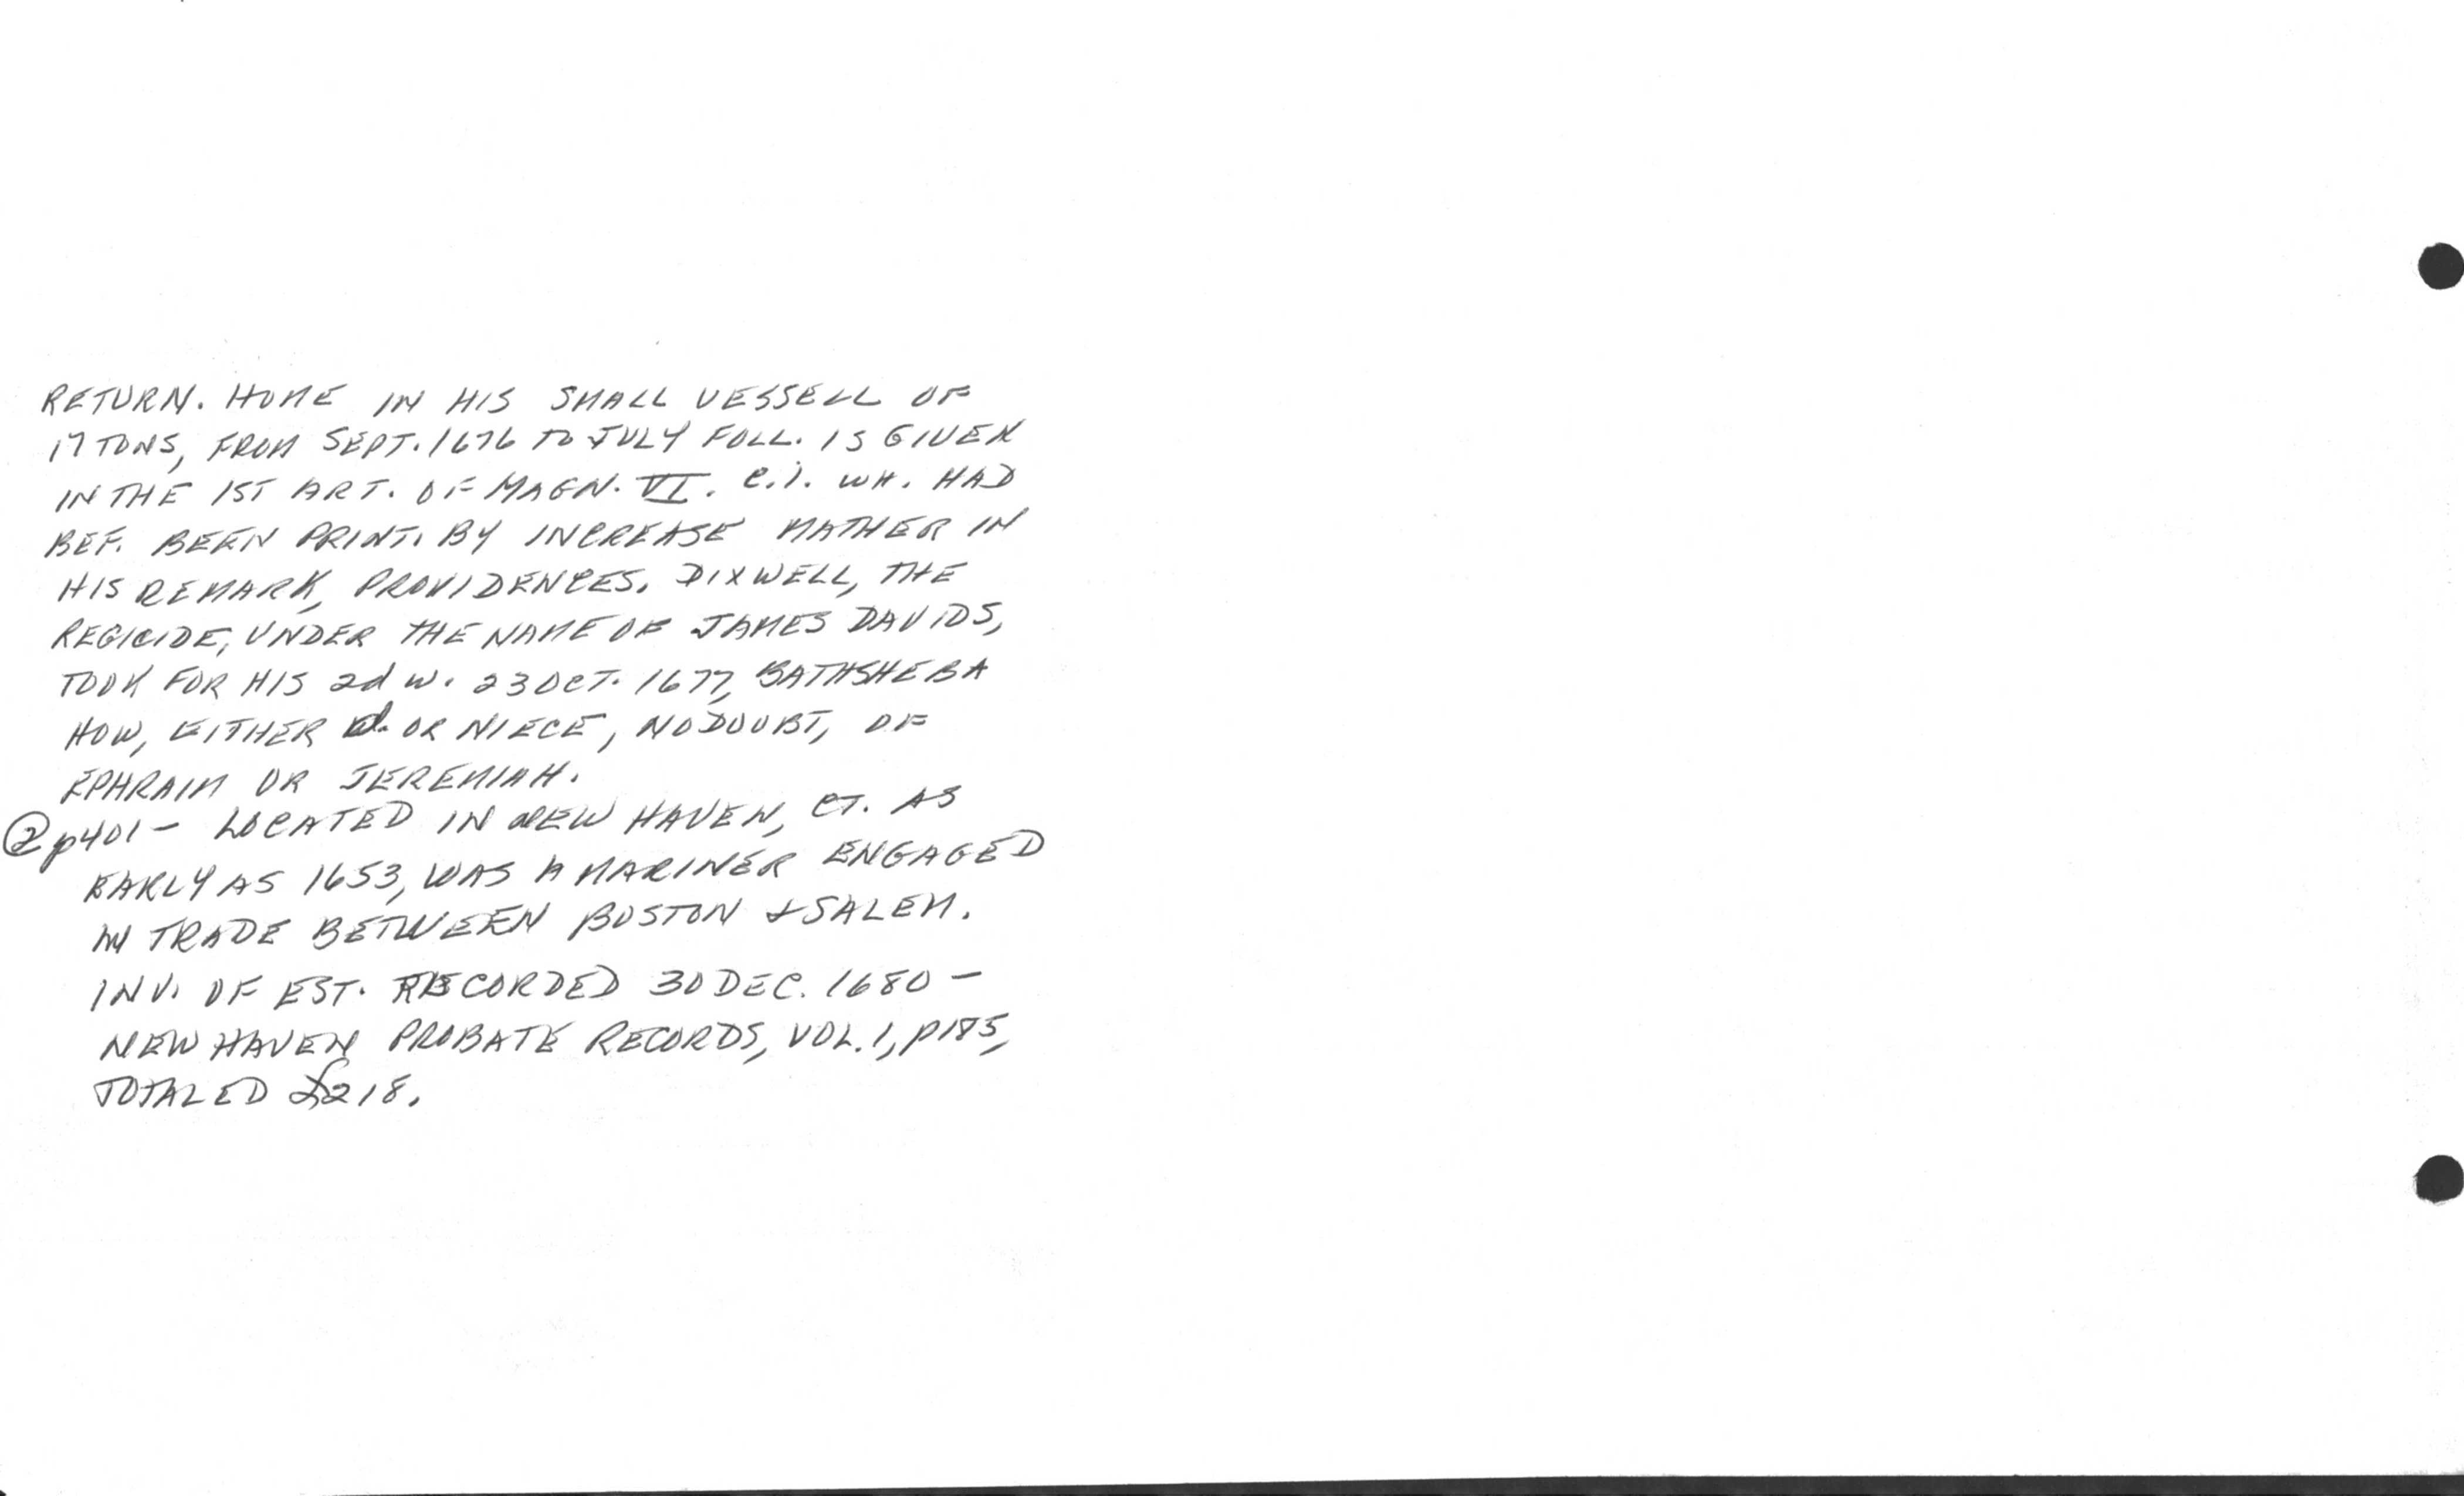 RETURN. HOME IN HIS SMALL VESSELL OF
17 TONS, FROM SEPT. 1676 TO JULY FOLL. IS GIVEN
IN THE 1ST ART. OF MAGN. VI. C.I. WH. HAD
BEF. BEEN PRINT. BY INCREASE MATHER IN
HIS REMARK, PROVIDENCES. DIXWELL, THE
REGICIDE, UNDER THE NAME OF JAMES DAVIDS,
TOOK FOR HIS 2d W. 23 OCT. 1677, BATHSHEBA
HOW, EITHER d. OR NIECE, NO DOUBT, OF
EPHRAIM OR JEREMIAH.
② p401 - LOCATED IN NEW HAVEN, CT. AS
EARLY AS 1653, WAS A MARINER ENGAGED
IN TRADE BETWEEN BOSTON & SALEM.
INV. OF EST. RECORDED 30 DEC. 1680 -
NEW HAVEN PROBATE RECORDS, VOL. 1, P185,
TOTALED £218.